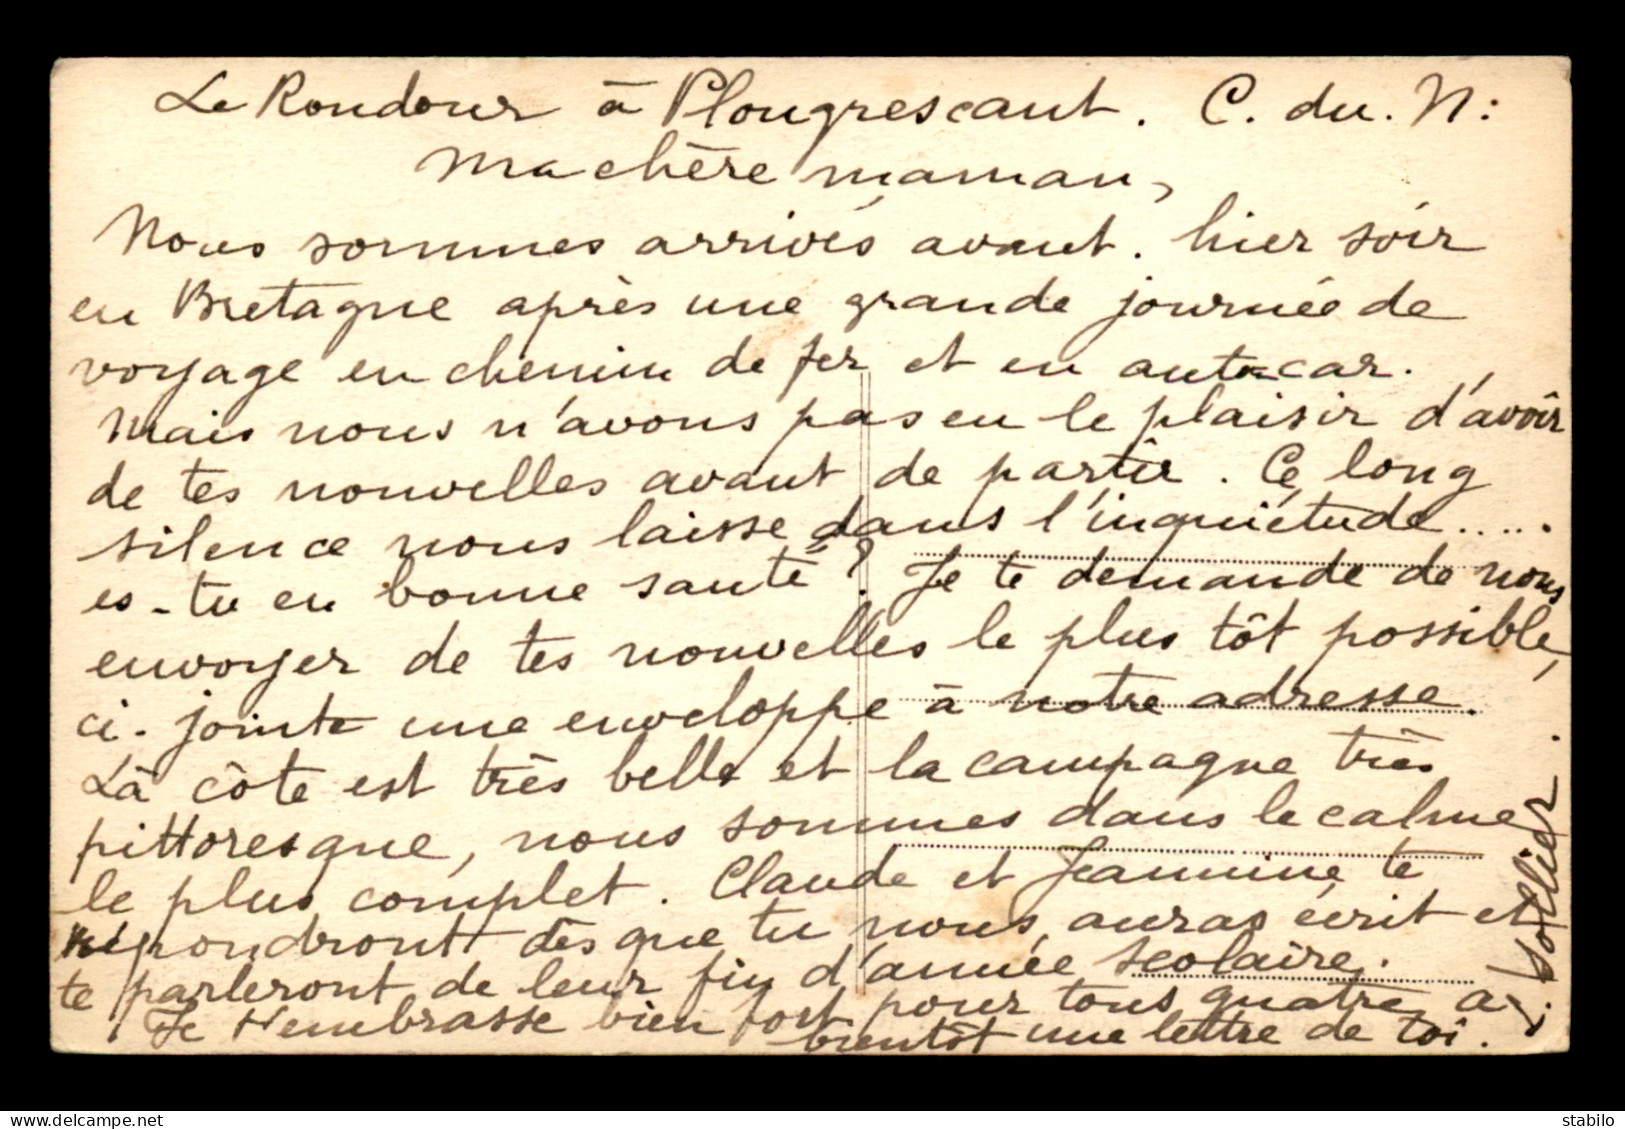 Le Roudour à Plougrescant. C. du. N:
Ma chère maman,
Nous sommes arrivés avant. hier soir
en Bretagne après une grande journée de
voyage en chemin de fer et en autocar.
Mais nous n'avons pas eu le plaisir d'avoir
de tes nouvelles avant de partir. Ce long
silence nous laisse dans l'inquiétude.....
es-tu en bonne santé? Je te demande de nous
envoyer de tes nouvelles le plus tôt possible,
ci-jointe une enveloppe à notre adresse.
La côte est très belle et la campagne très
pittoresque, nous sommes dans le calme
le plus complet. Claude et Jeannine te
répondront dès que tu nous auras écrit et
te parleront de leur fin d'année scolaire.
Je t'embrasse bien fort pour tous quatre, à
bientôt une lettre de toi.
stabilo